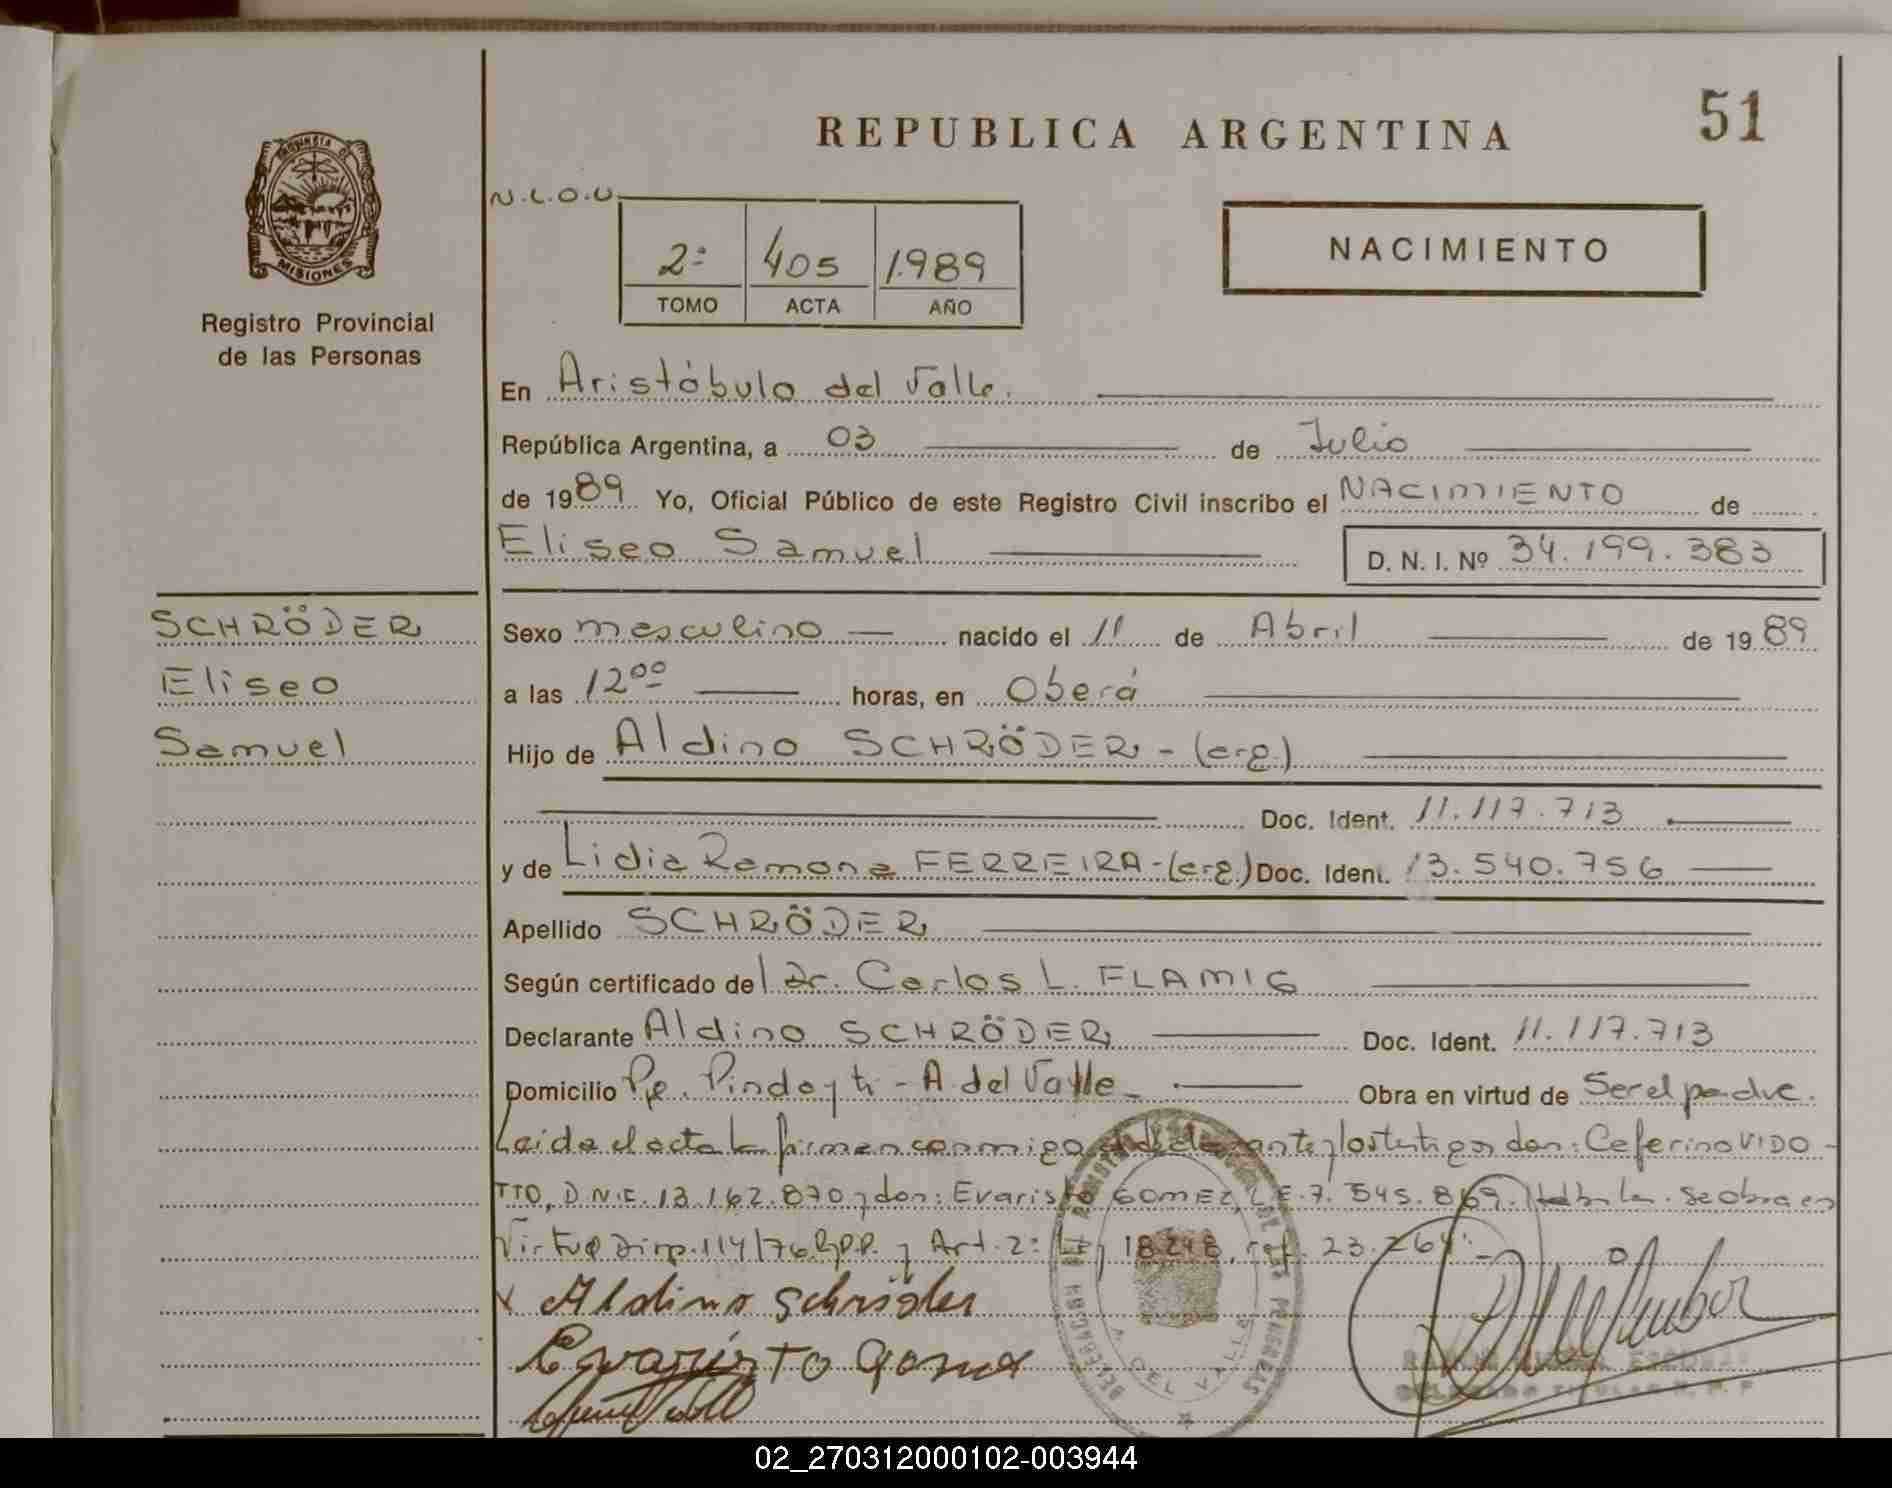 REPUBLICA ARGENTINA
51
PROVINCIA DE
MISIONES
Registro Provincial
de las Personas
N.L.O.U.
2º 405 1.989
TOMO ACTA AÑO
NACIMIENTO
En Aristóbulo del Valle.
República Argentina, a 03 de Julio
de 1989 Yo, Oficial Público de este Registro Civil inscribo el NACIMIENTO de
Eliseo Samuel
D. N. I. Nº 34.199.383
SCHRÖDER
Eliseo
Samuel
Sexo masculino nacido el 11 de Abril de 1989
a las 12⁰⁰ horas, en Oberá
Hijo de Aldino SCHRÖDER - (arg.)
Doc. Ident. 11.117.713
y de Lidia Ramona FERREIRA - (arg.) Doc. Ident. 13.540.756
Apellido SCHRÖDER
Según certificado del Dr. Carlos L. FLAMIG
Declarante Aldino SCHRÖDER Doc. Ident. 11.117.713
Domicilio Pje. Pindayti - A. del Valle - Obra en virtud de Ser el padre.
Leída el acta la firman conmigo el declarante y los testigos don: Ceferino VIDO-
TTO, D.N.I. 13.162.870 y don: Evaristo GOMEZ, L.E. 7.545.869. Se obra en
Virtud Disp. 114/76 y Art. 2º Ley 18.248, 23.264.-
x Aldino Schröder
Evaristo Gomez
DELEGACION DEL REGISTRO PROVINCIAL DE LAS PERSONAS
A. DEL VALLE
DELEGADO TITULAR R. P. P.
02_270312000102-003944